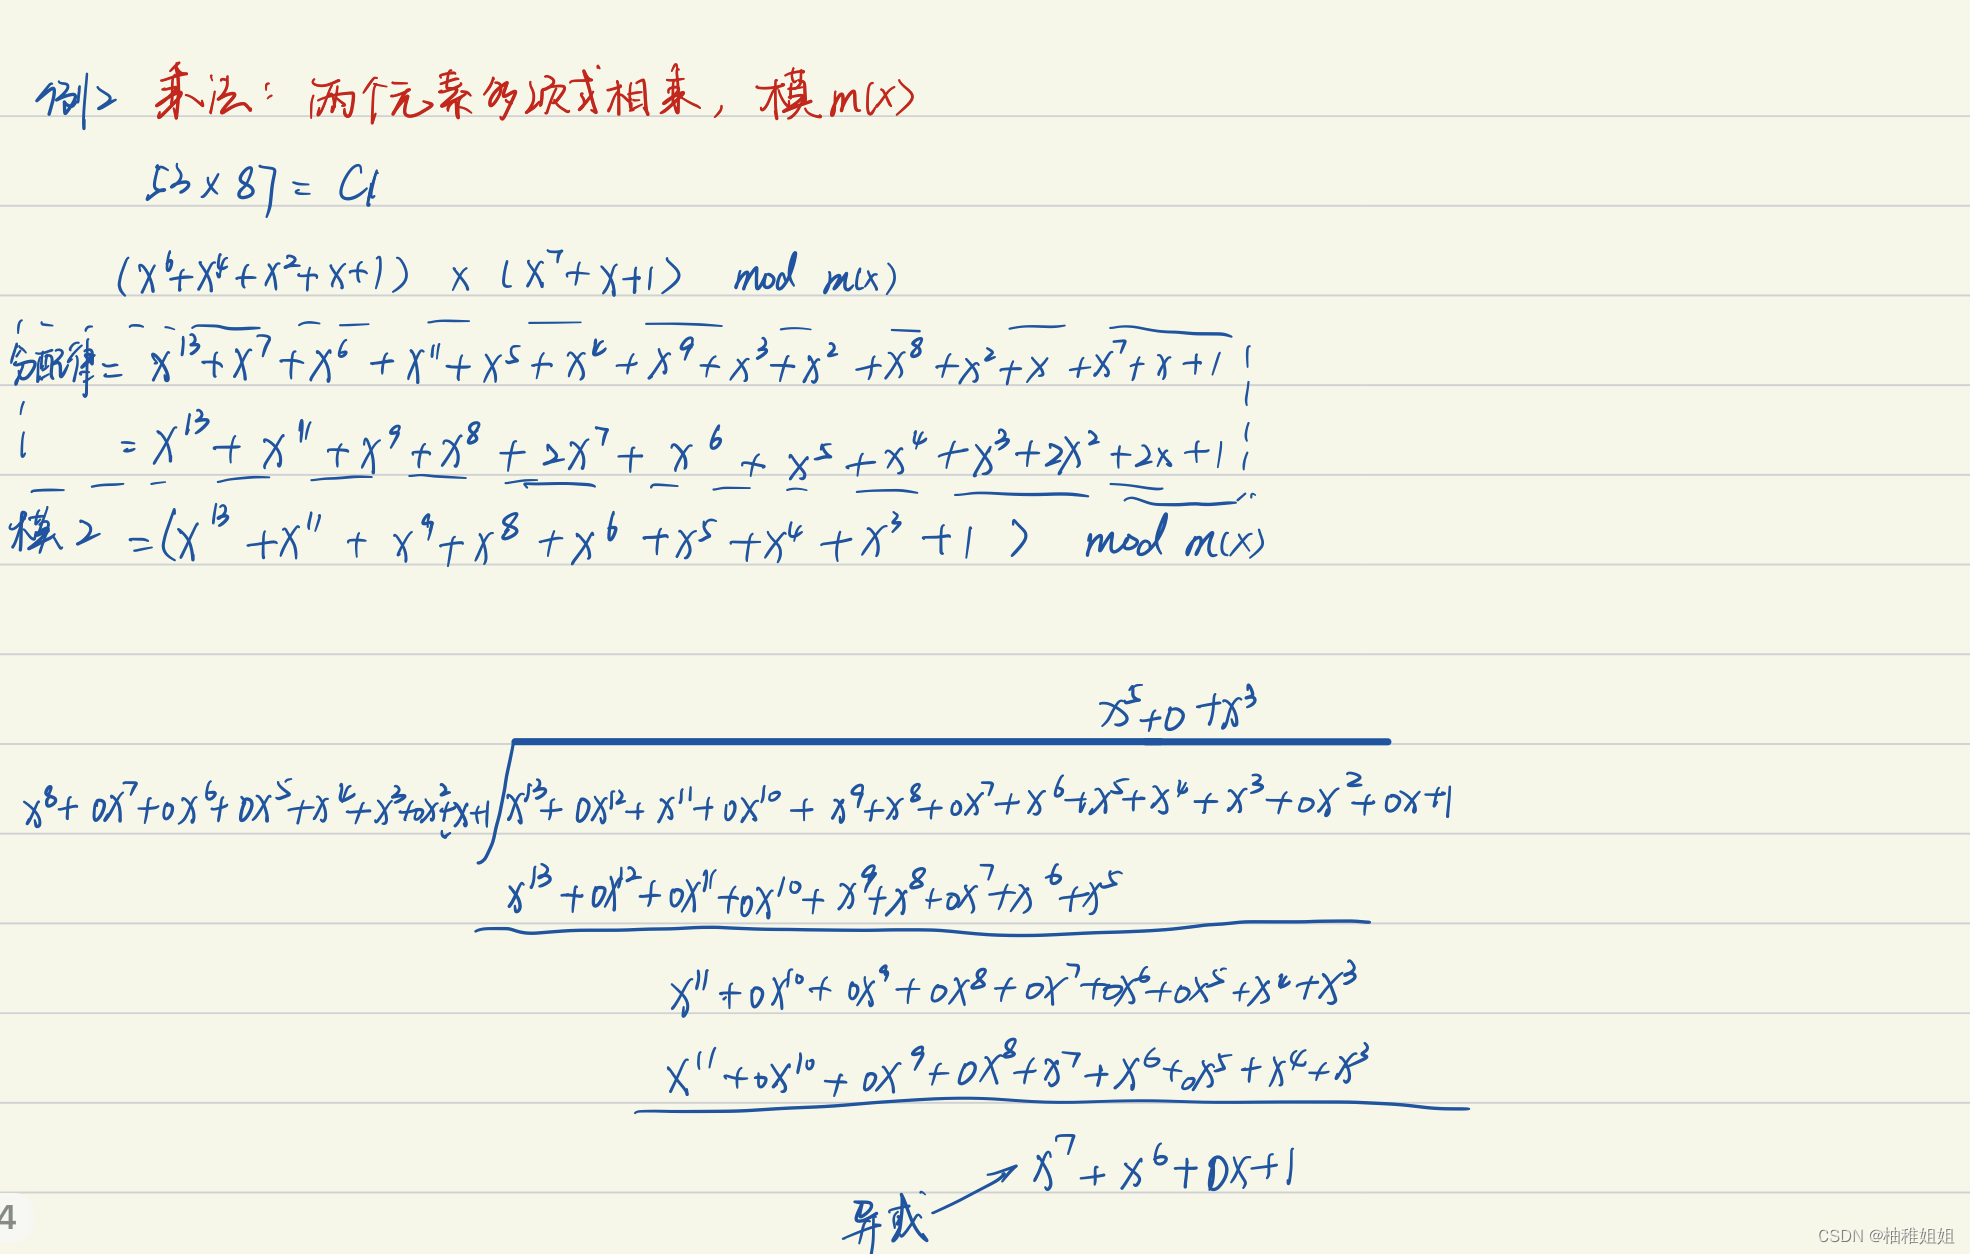 例2 乘法: 两个元素多项式相乘, 模 m(x)
53 × 87 = C1
(x⁶+x⁴+x²+x+1) × (x⁷+x+1) mod m(x)
分配律= x¹³+x⁷+x⁶+x¹¹+x⁵+x⁴+x⁹+x³+x²+x⁸+x²+x+x⁷+x+1
= x¹³+x¹¹+x⁹+x⁸+2x⁷+x⁶+x⁵+x⁴+x³+2x²+2x+1
模2 =(x¹³+x¹¹+x⁹+x⁸+x⁶+x⁵+x⁴+x³+1) mod m(x)
x⁵+0+x³
x⁸+0x⁷+0x⁶+0x⁵+x⁴+x³+0x²+x+1 x¹³+0x¹²+x¹¹+0x¹⁰+x⁹+x⁸+0x⁷+x⁶+x⁵+x⁴+x³+0x²+0x+1
x¹³+0x¹²+0x¹¹+0x¹⁰+x⁹+x⁸+0x⁷+x⁶+x⁵
x¹¹+0x¹⁰+0x⁹+0x⁸+0x⁷+0x⁶+0x⁵+x⁴+x³
x¹¹+0x¹⁰+0x⁹+0x⁸+x⁷+x⁶+0x⁵+x⁴+x³
x⁷+x⁶+0x+1
异或
4
CSDN @柚稚姐姐